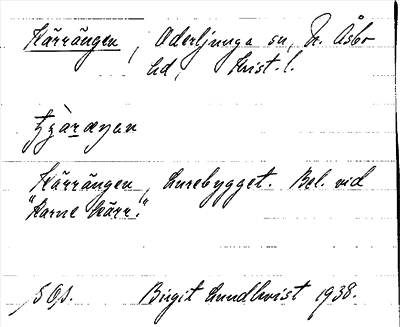 Kärrängen, Oderljunga sn, N. Åsbo
hd, Krist. l.
Kärrängen, Lurebygget. Bel. vid
"Karne Kärr."
Birgit Lundkvist 1938.